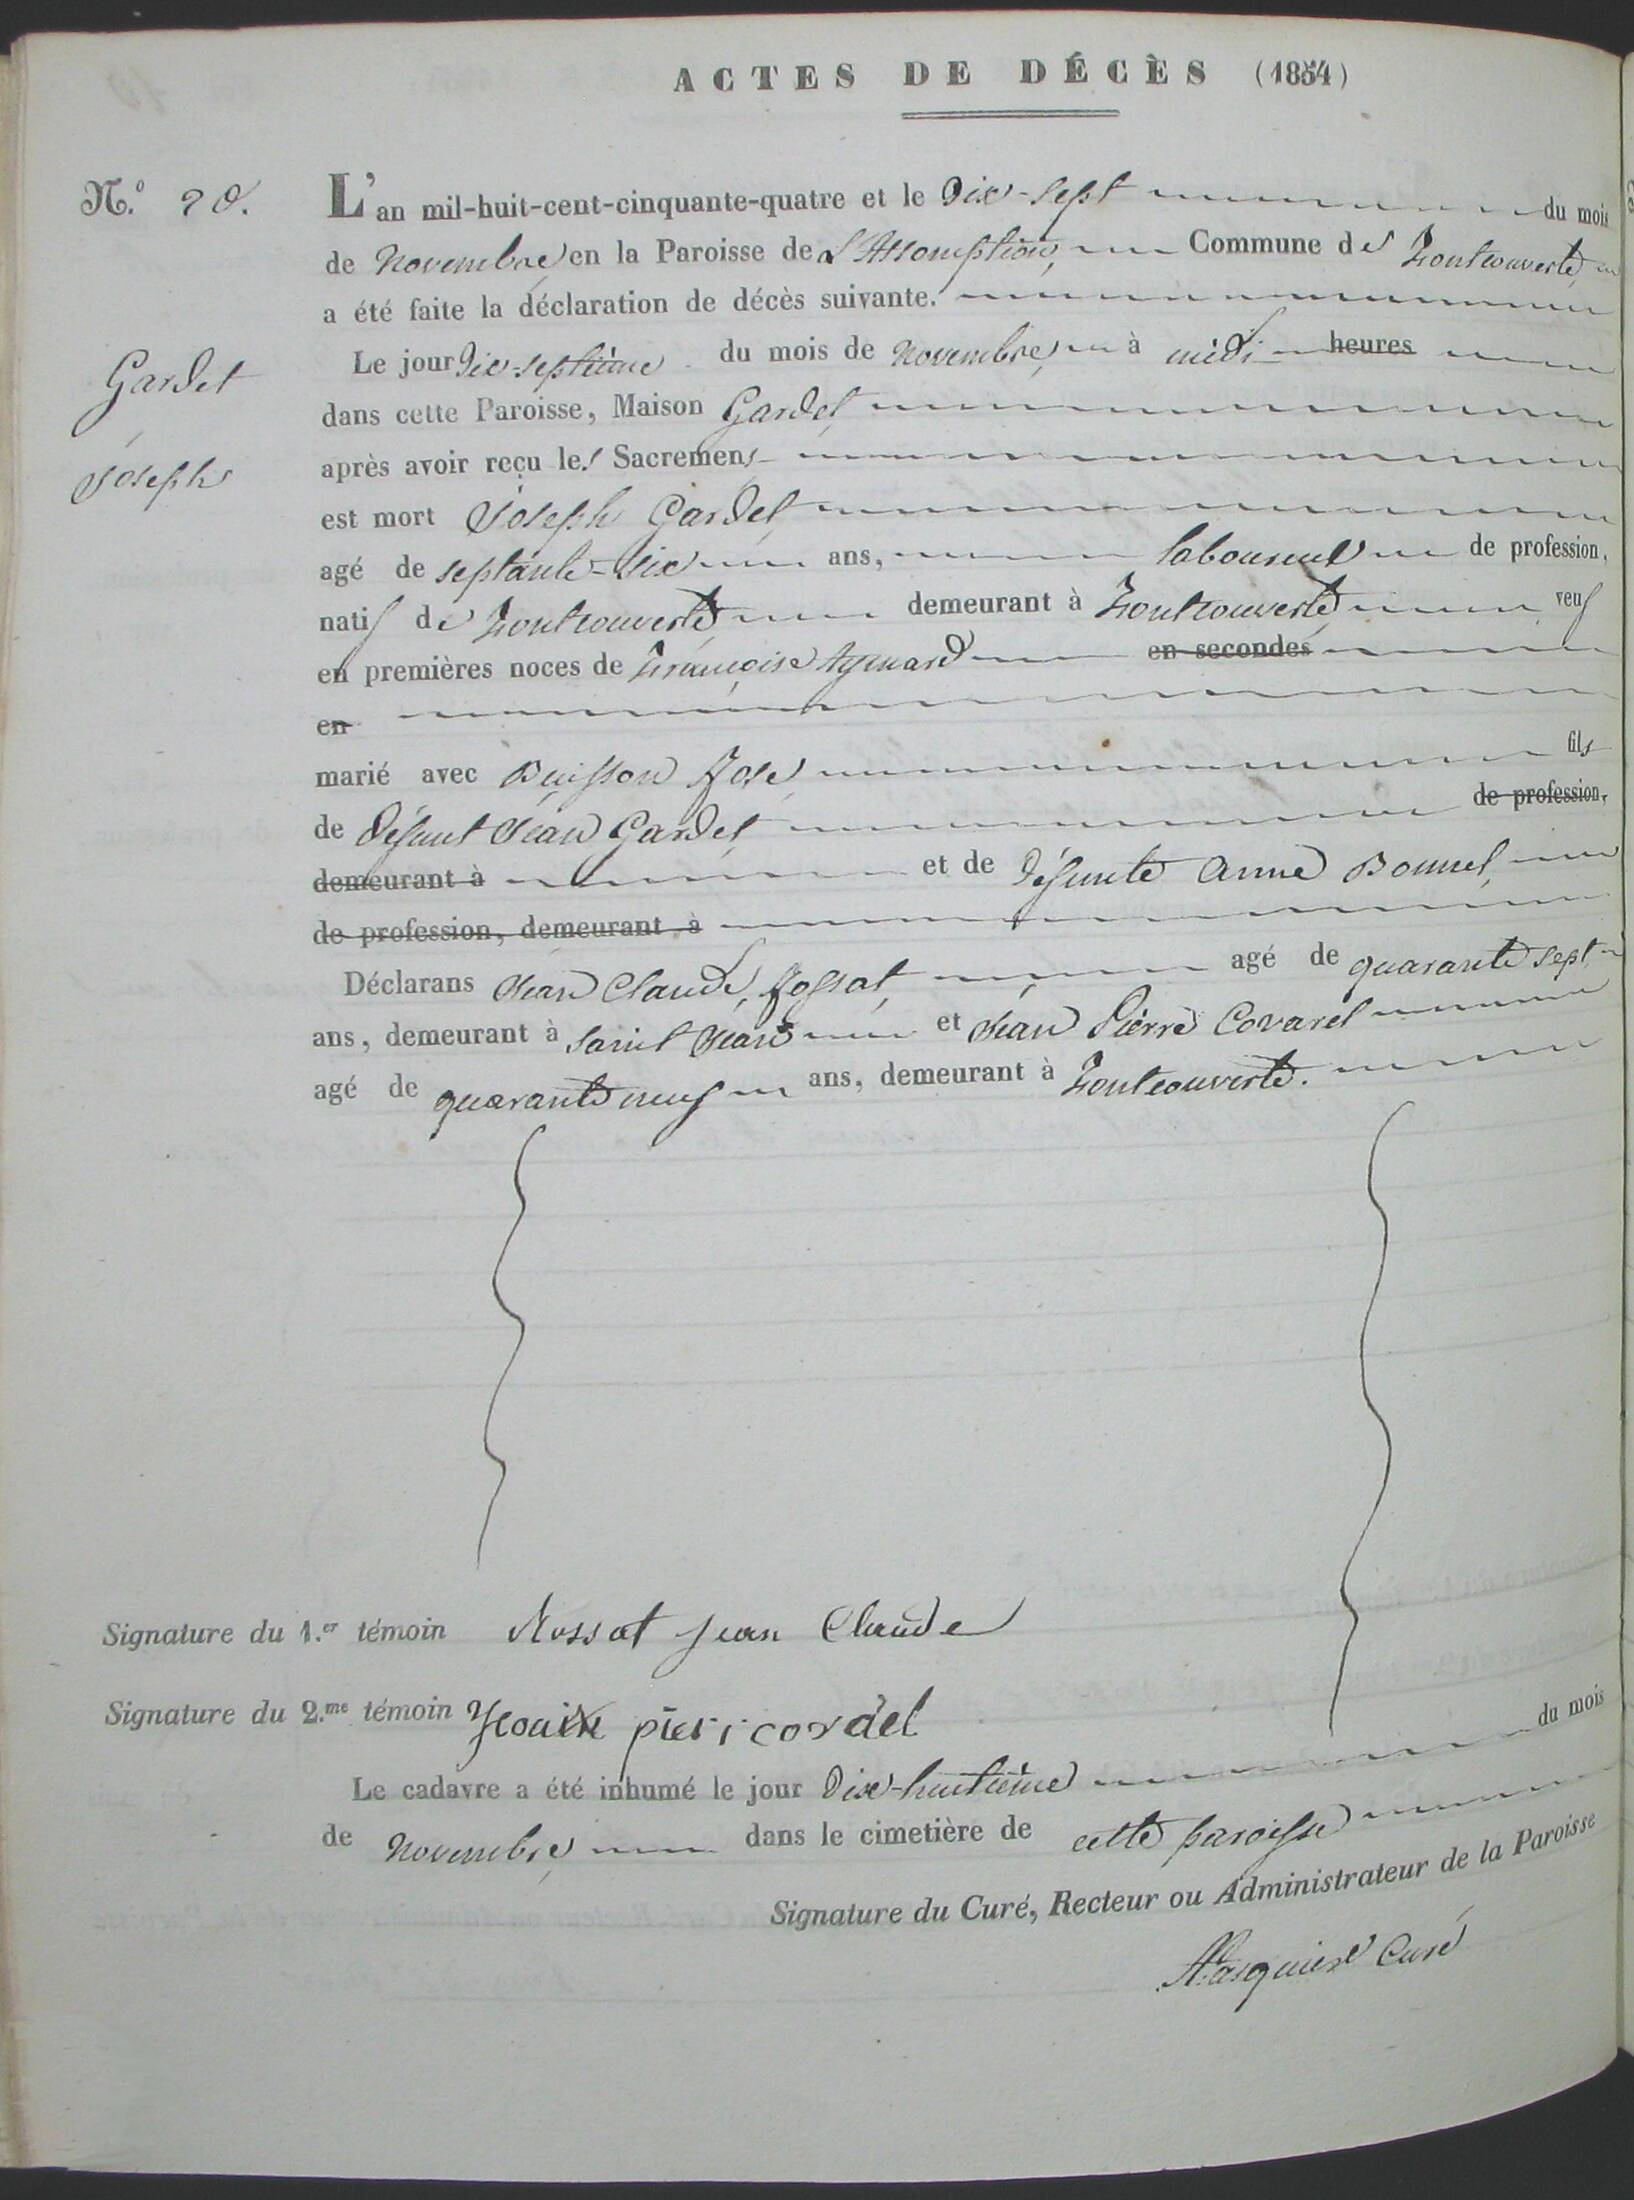 ACTES DE DÉCÈS (1854)
N.º 20.
L'an mil-huit-cent-cinquante-quatre et le Dix-sept du mois
de Novembre en la Paroisse de L'Assomption, Commune de Fontcouverte
a été faite la déclaration de décès suivante.
Gardet
Joseph
Le jour Dix-septième du mois de Novembre, à midi heures
dans cette Paroisse, Maison Gardet
après avoir reçu les Sacremens
est mort Joseph Gardet
agé de septante-six ans, laboureur de profession,
natif de Fontcouverte demeurant à Fontcouverte veuf
en premières noces de Françoise Aymard en secondes
en
marié avec Buisson Rose fils
de défunt Jean Gardet de profession,
demeurant à et de défunte Anne Bonnel
de profession, demeurant à
Déclarans Jean Claude Rossat, agé de quarante sept
ans, demeurant à Saint Jean et Jean Pierre Covarel
agé de quarante neuf ans, demeurant à Fontcouverte.
Signature du 1.er témoin Rossat Jean Claude
Signature du 2.me témoin
Le cadavre a été inhumé le jour Dix-huitième du mois
de Novembre dans le cimetière de cette paroisse
Signature du Curé, Recteur ou Administrateur de la Paroisse
Curé